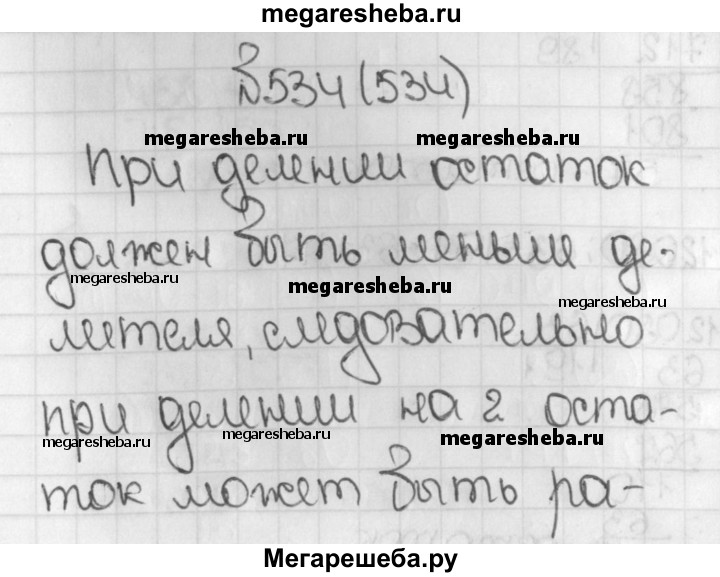 megaresheba.ru
№534 (534)
megaresheba.ru megaresheba.ru
При делении остаток
должен быть меньше де-
megaresheba.ru megaresheba.ru megaresheba.ru
лителя, следовательно
при делении на 2 оста-
megaresheba.ru megaresheba.ru megaresheba.ru
ток может быть ра-
Мегарешеба.ру